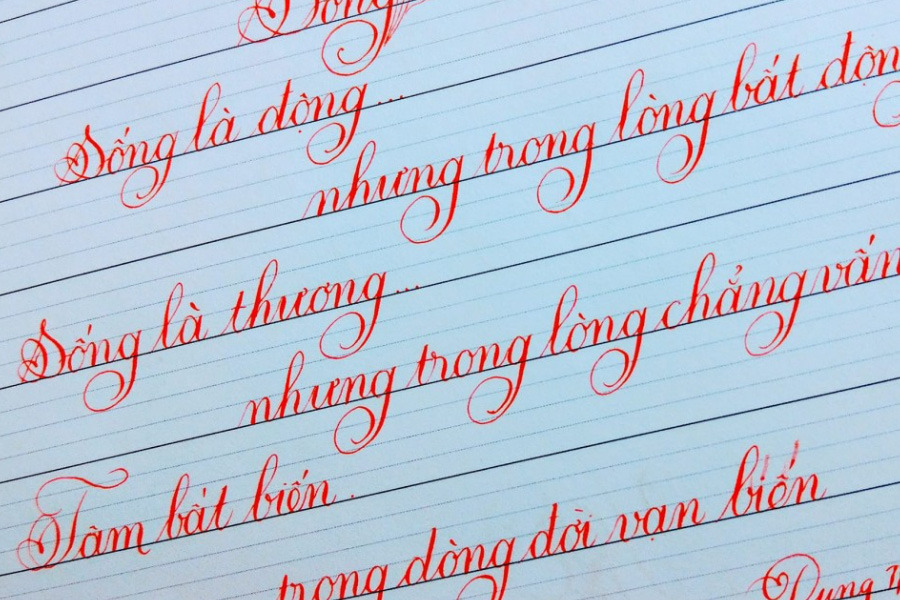 Sống là động...
nhưng trong lòng bất động
Sống là thương...
nhưng trong lòng chẳng vấn
Tâm bất biến .
trong dòng đời vạn biến
Dung